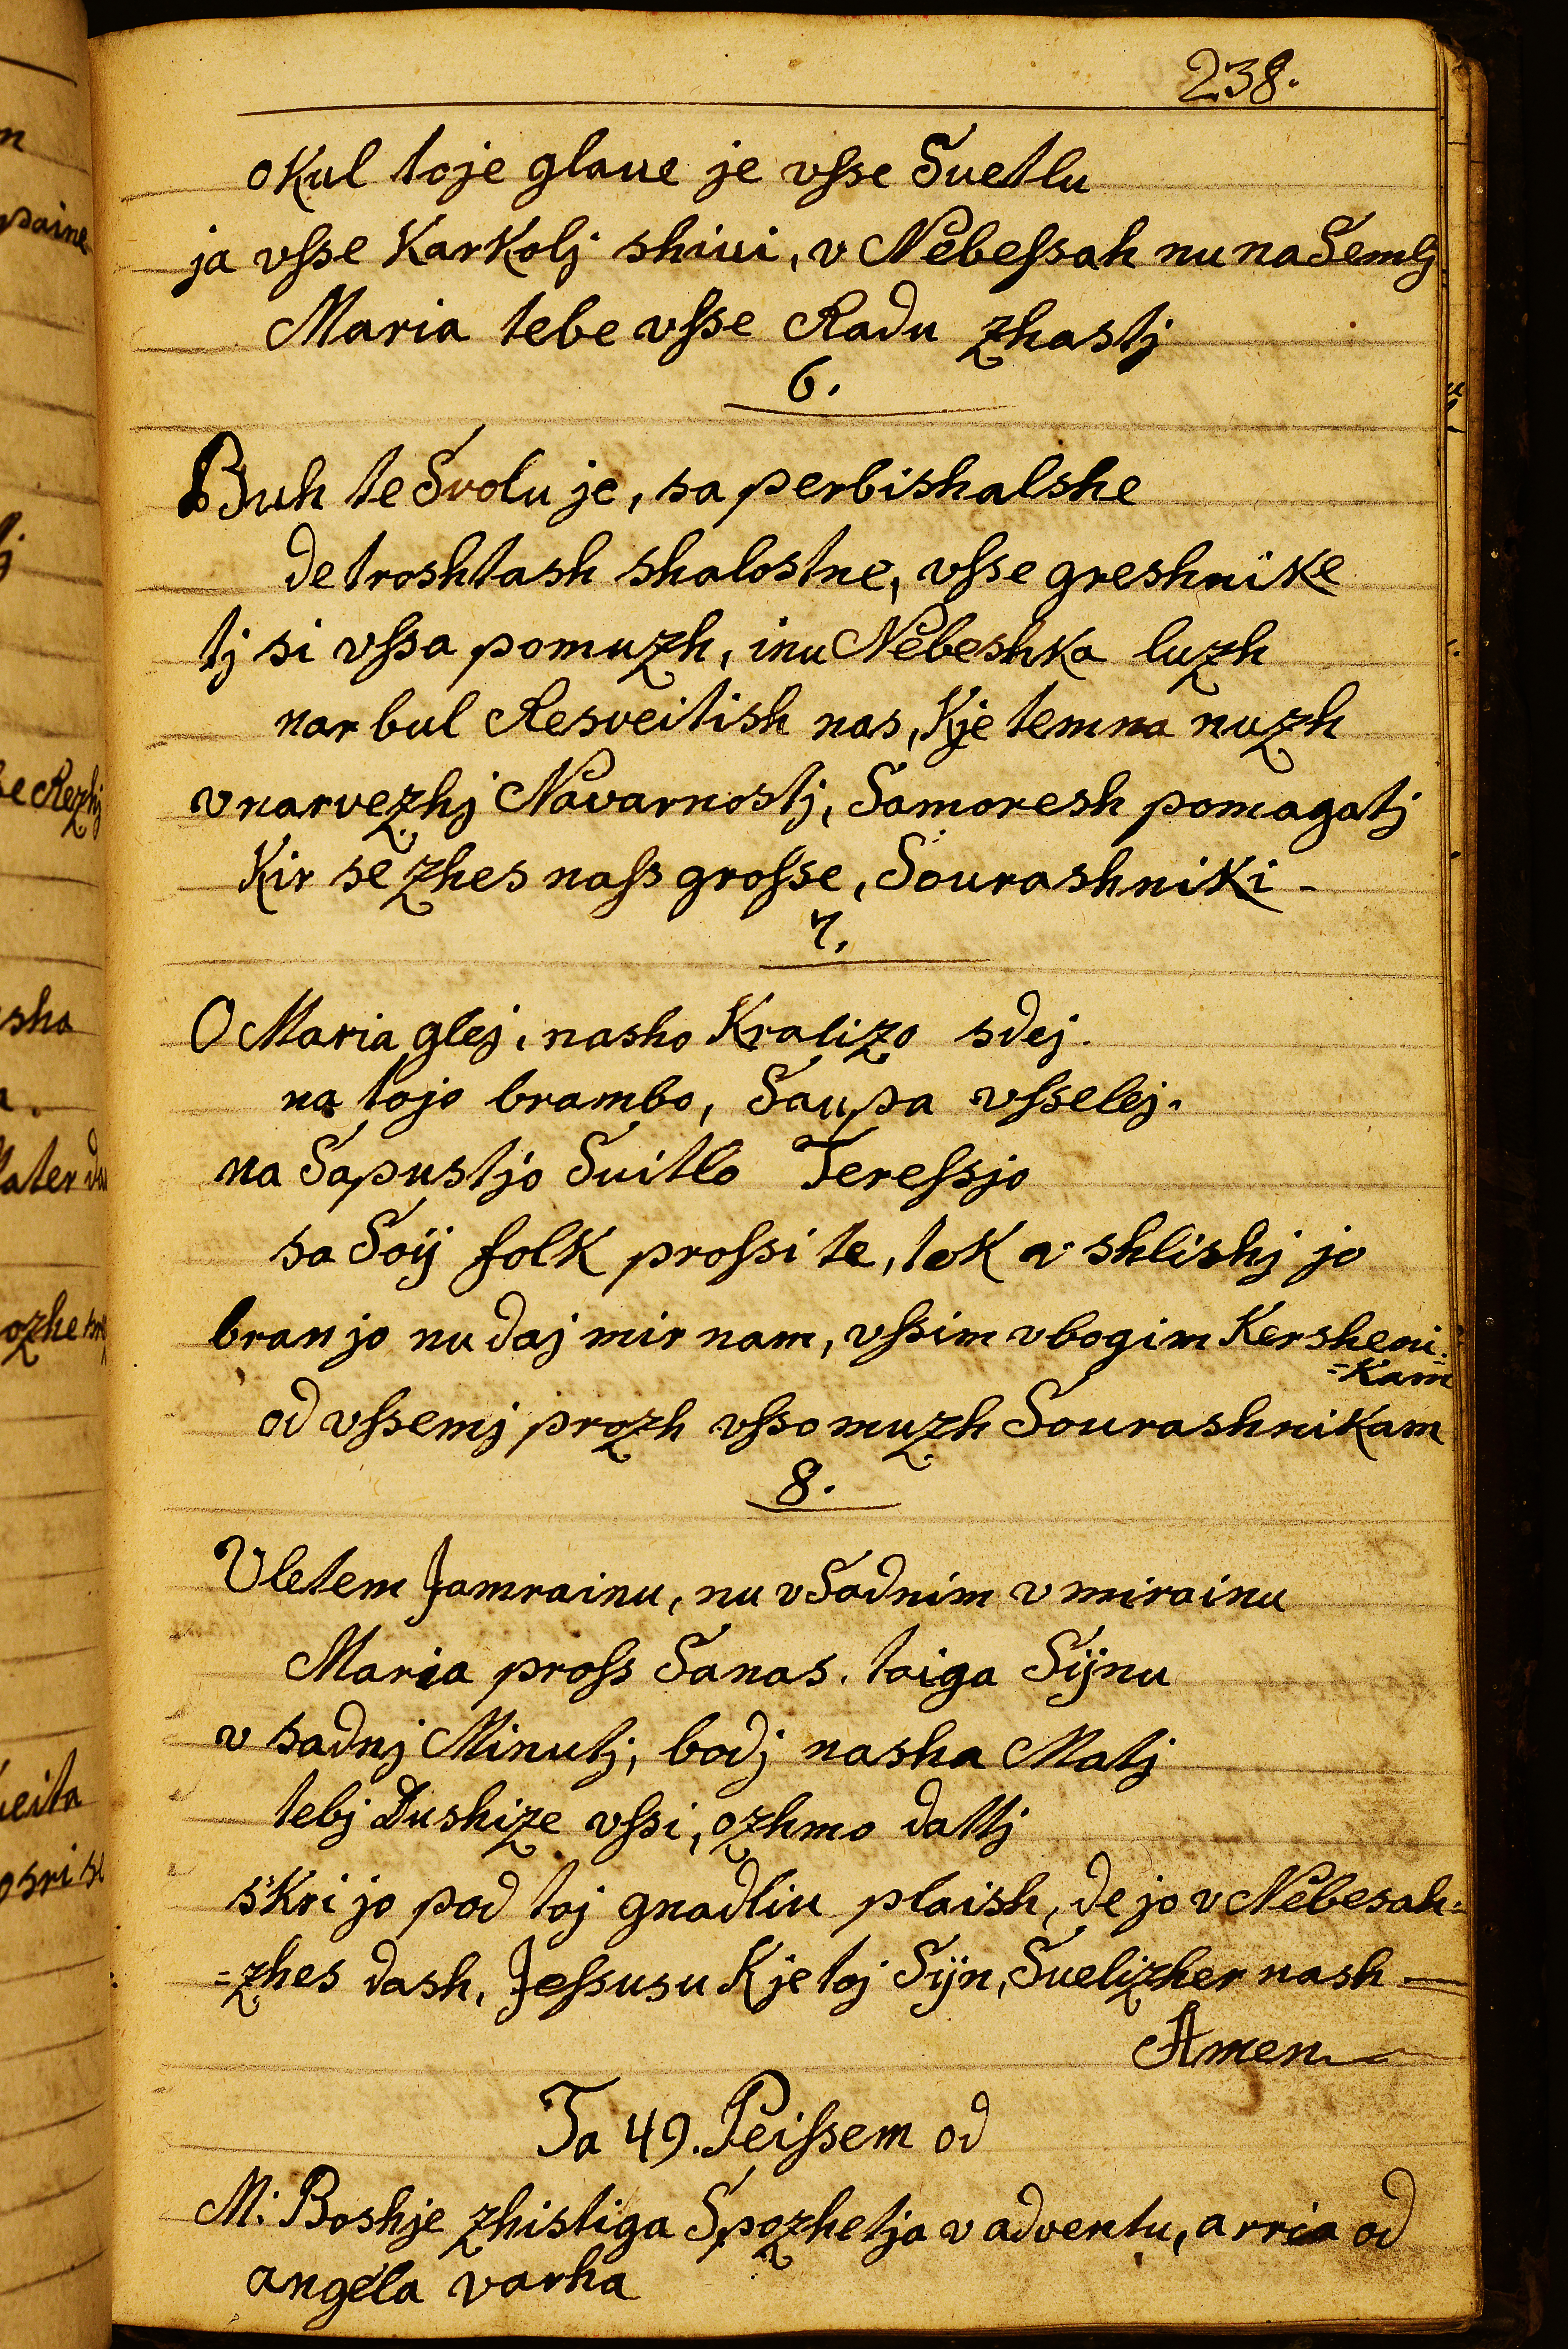 238.
okul toje glave je vsse Suetlu
ja vsse Karkolj shiui, v Nebessah nu na Semlj
Maria tebe vsse Radu zhastj
6.
Buh te Svolu je, sa perbishalshe
de troshtash shalostne, vsse greshnike
tj si vssa pomuzh, inu Nebeshka luzh
nar bul Resveitish nas, Kje temna nuzh
v narvezhj Navarnostj, Samoresh pomagatj
Kir se zhes nass grosse, Sourashniki -
7.
O Maria glej, nasho Kralizo sdej.
na tojo brambo, Saupa vsselej.
na Sapustjo Suitlo Teressjo
sa Soij folk prossi te, tok v shlishj jo
bran jo nu daj mir nam, vssim vbogim Kersheni=
=Kam
od vssemj prozh vsso muzh Sourashnikam
8.
Vletem Jamrainu, nu v Sadnim v mirainu
Maria pross Sanas. toiga Sijnu
v sadnj Minutj, bodj nasha Matj
tebj Dushize vssi, ozhmo dattj
s'Kri jo pod toj gnadliu plaish, de jo v Nebesah=
=zhes dash, Jessusu Kje toj Sijn, Suelizher nash —
Amen
Ta 49. Peissem od
M: Boshje zhistiga Spozhetja v adventu, arria od
angela varha